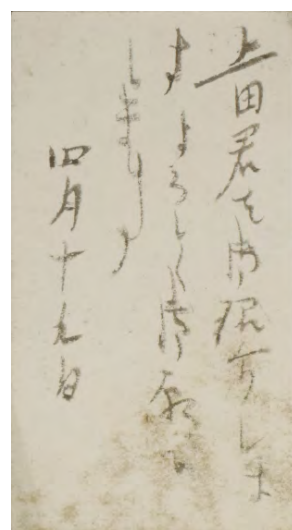 上田君を御紹介しま
すよろしく御願ひ
します
四月十九日